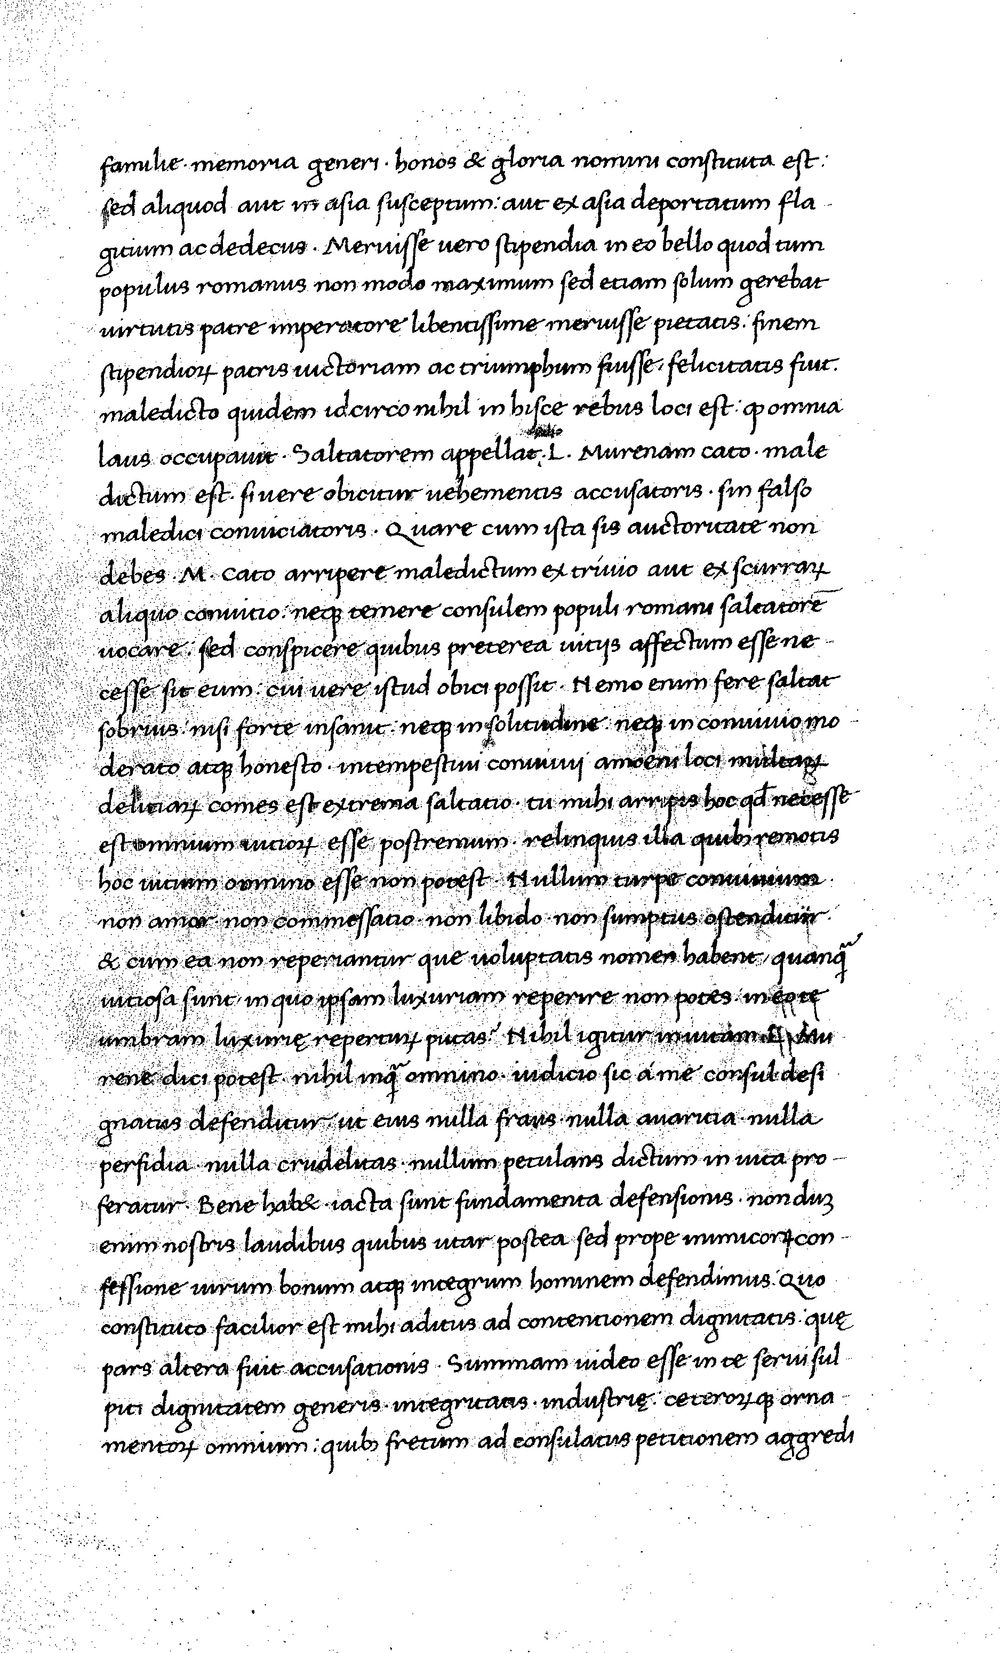 familie · memoria generi · honos & gloria nomini constituta est :
sed aliquod aut in asia susceptum : aut ex asia deportatum fla-
gitium ac dedecus · Meruisse uero stipendia in eo bello quod tum
populus romanus non modo maximum sed etiam solum gerebat
uirtutis patre imperatore libentissime meruisse pietatis : finem
stipendioꝝ patris uictoriam ac triumphum fuisse , felicitatis fuit .
maledicto quidem idcirco nihil in hisce rebus loci est : ꝙ omnia
laus occupauit · Saltatorem appellat . L . Murenam cato · male
dictum est · si uere obicitur uehementis accusatoris · sin falso
maledici conuiciatoris · Quare cum ista sis auctoritate non
debes · M · cato arripere maledictum ex triuio aut ex scurraꝝ
aliquo conuitio · neqꝫ temere consulem populi romani saltatorē
uocare : sed conspicere quibus preterea uitijs affectum esse ne-
cesse sit eum : cui uere istud obici possit · Nemo enim fere saltat
sobrius : nisi forte insanit · neqꝫ in solitudine · neqꝫ in conuiuio mo-
derato atqꝫ honesto · intempestiui conuiuij amoeni loci multaꝝ
delitiaꝝ comes est extrema saltatio · tu mihi arripis hoc qđ necesse
est omnium uitioꝝ esse postremum · relinquis illa quibꝫ remotis
hoc uitium omnino esse non potest · Nullum turpe conuiuium ·
non amor · non commessatio · non libido · non sumptus ostenditur ·
& cum ea non reperiantur que uoluptatis nomen habent , quanq̃
uitiosa sunt , in quo ipsam luxuriam reperire non potes · in eo te
umbram luxurię reperturꝝ putas ? Nihil igitur in uitam L . Mu
rene dici potest · nihil inq̃ omnino · iudicio sic á me consul desi
gnatus defenditur : ut eius nulla fraus · nulla auaritia · nulla
perfidia · nulla crudelitas · nullum petulans dictum in uita pro-
feratur · Bene hab& · iacta sunt fundamenta defensionis · non duꝫ
enim nostris laudibus quibus utar postea sed prope inimicoꝝ con-
fessione uirum bonum atqꝫ integrum hominem defendimus : Quo
constituto facilior est mihi aditus ad contentionem dignitatis : quę
pars altera fuit accusationis · Summam uideo esse in te serui sul
pici dignitatem generis · integritatis · industrię · ceteroꝝqꝫ orna-
mentoꝝ omnium : quibꝫ fretum ad consulatus petitionem aggredi